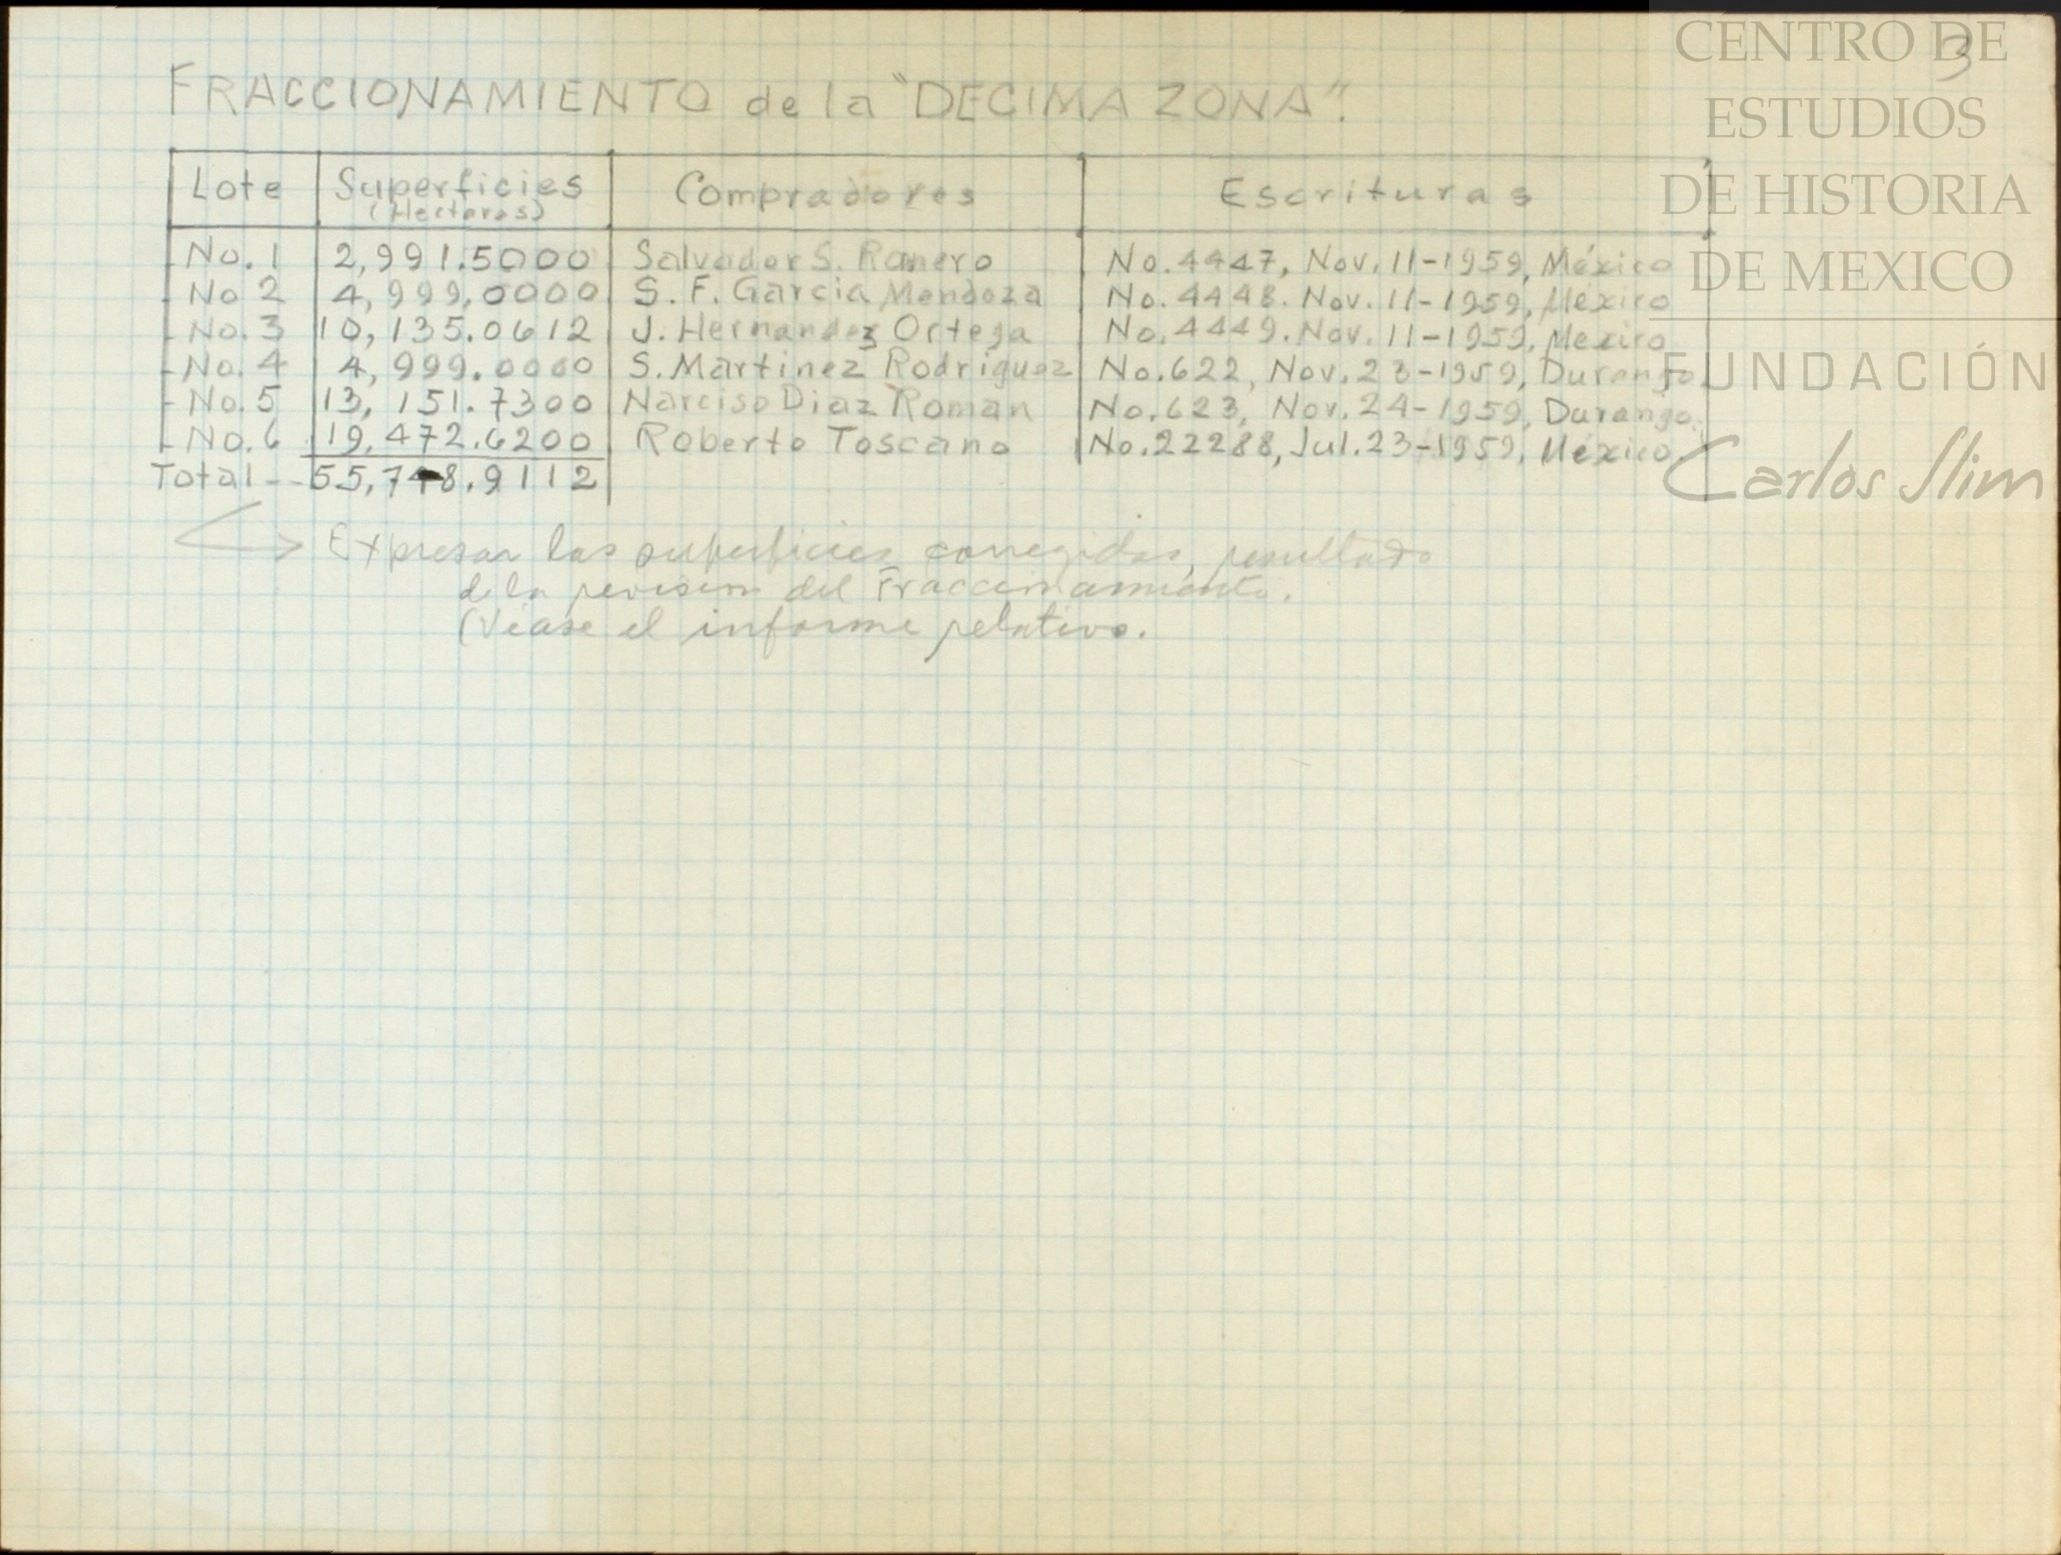 3
FRACCIONAMIENTO de la "DECIMA ZONA".
Lote Superficies (Hectaras) Compradores Escrituras
No. 1 2,991.5000 Salvador S. Romero No. 4447, Nov. 11-1959, México
No 2 4,999.0000 S. F. Garcia Mendoza No. 4448. Nov. 11-1959, México
No. 3 10,135.0612 J. Hernandez Ortega No. 4449. Nov. 11-1959, Mexico
No. 4 4,999.0000 S. Martinez Rodriguez No. 622, Nov. 23-1959, Durango
No. 5 13,151.7300 Narciso Diaz Roman No. 623, Nov. 24-1959, Durango.
No. 6 19,472.6200 Roberto Toscano No. 22288, Jul. 23-1959, México.
Total -- 55,748.9112
Expresar las superficies corregidas, resultado
de la revision del Fraccionamiento.
(Véase el informe relativo.
CENTRO DE
ESTUDIOS
DE HISTORIA
DE MEXICO
FUNDACIÓN
Carlos Slim